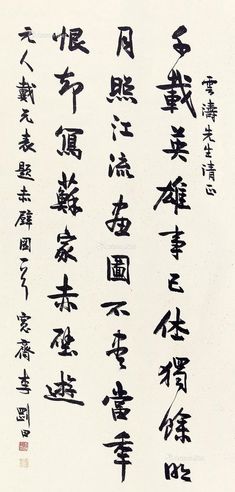 雲濤先生清正
千載英雄事已休獨餘明
月照江流畫圖不盡當年
恨却寫蘇家赤壁遊
元人戴元表題赤壁圖一首 寬齋李剛田